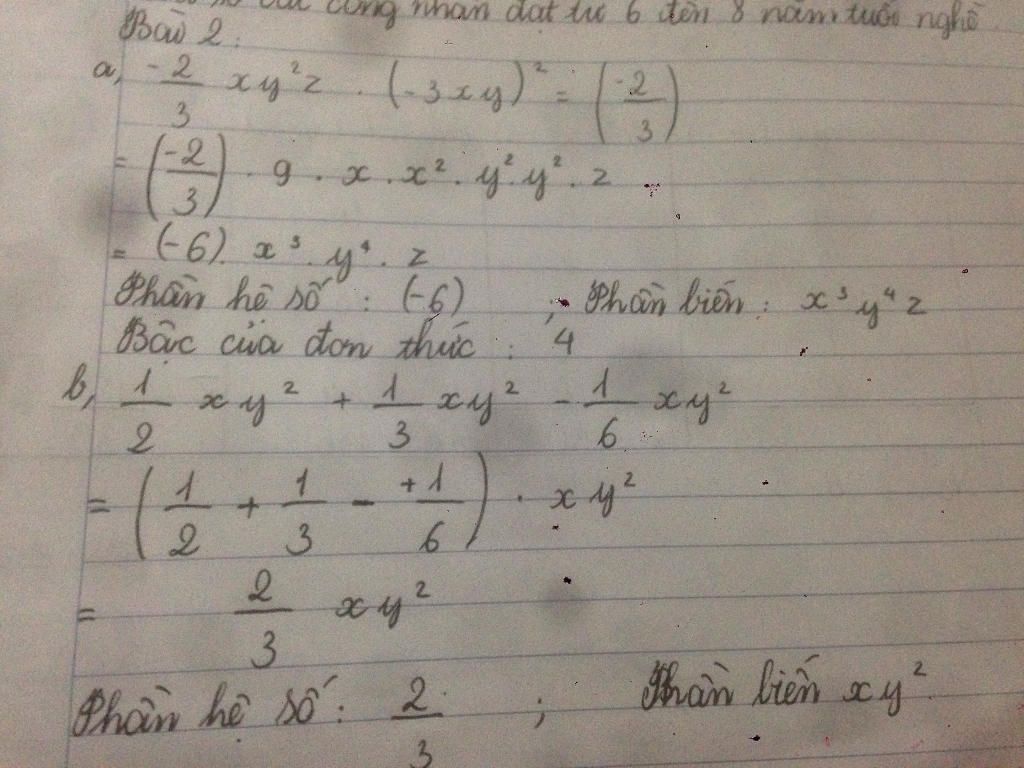 số các công nhân đạt từ 6 đến 8 năm tuổi nghề
Bài 2:
a, -2/3 xy²z . (-3xy)² = (-2/3)
= (-2/3) . 9 . x . x² . y² . y² . z
= (-6) . x³ . y⁴ . z
Phần hệ số : (-6) ; Phần biến : x³y⁴z
Bậc của đơn thức : 4
b, 1/2 xy² + 1/3 xy² - 1/6 xy²
= (1/2 + 1/3 - +1/6) . xy²
= 2/3 xy²
Phần hệ số : 2/3 ; Phần biến xy²